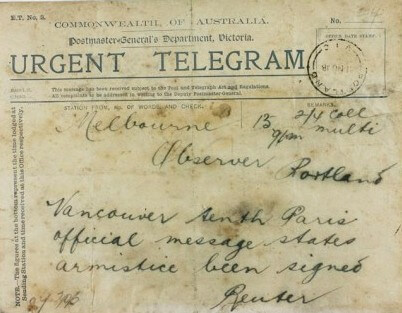 B.T. No. 5.
COMMONWEALTH OF AUSTRALIA.
No.
Postmaster-General's Department, Victoria.
OFFICE DATE STAMP
URGENT TELEGRAM
PORTLAND
This message has been received subject to the Post and Telegraph Act and Regulations.
All complaints to be addressed in writing to the Deputy Postmaster-General.
STATION FROM, No. OF WORDS AND CHECK.
REMARKS.
Melbourne 15 2/1 Coll
9pm multi
Observer Portland
Vancouver tenth Paris
official message states
armistice been signed
Reuter
NOTE.—The figures at the bottom represent the time lodged at
Sending Station and time received at this Office respectively.